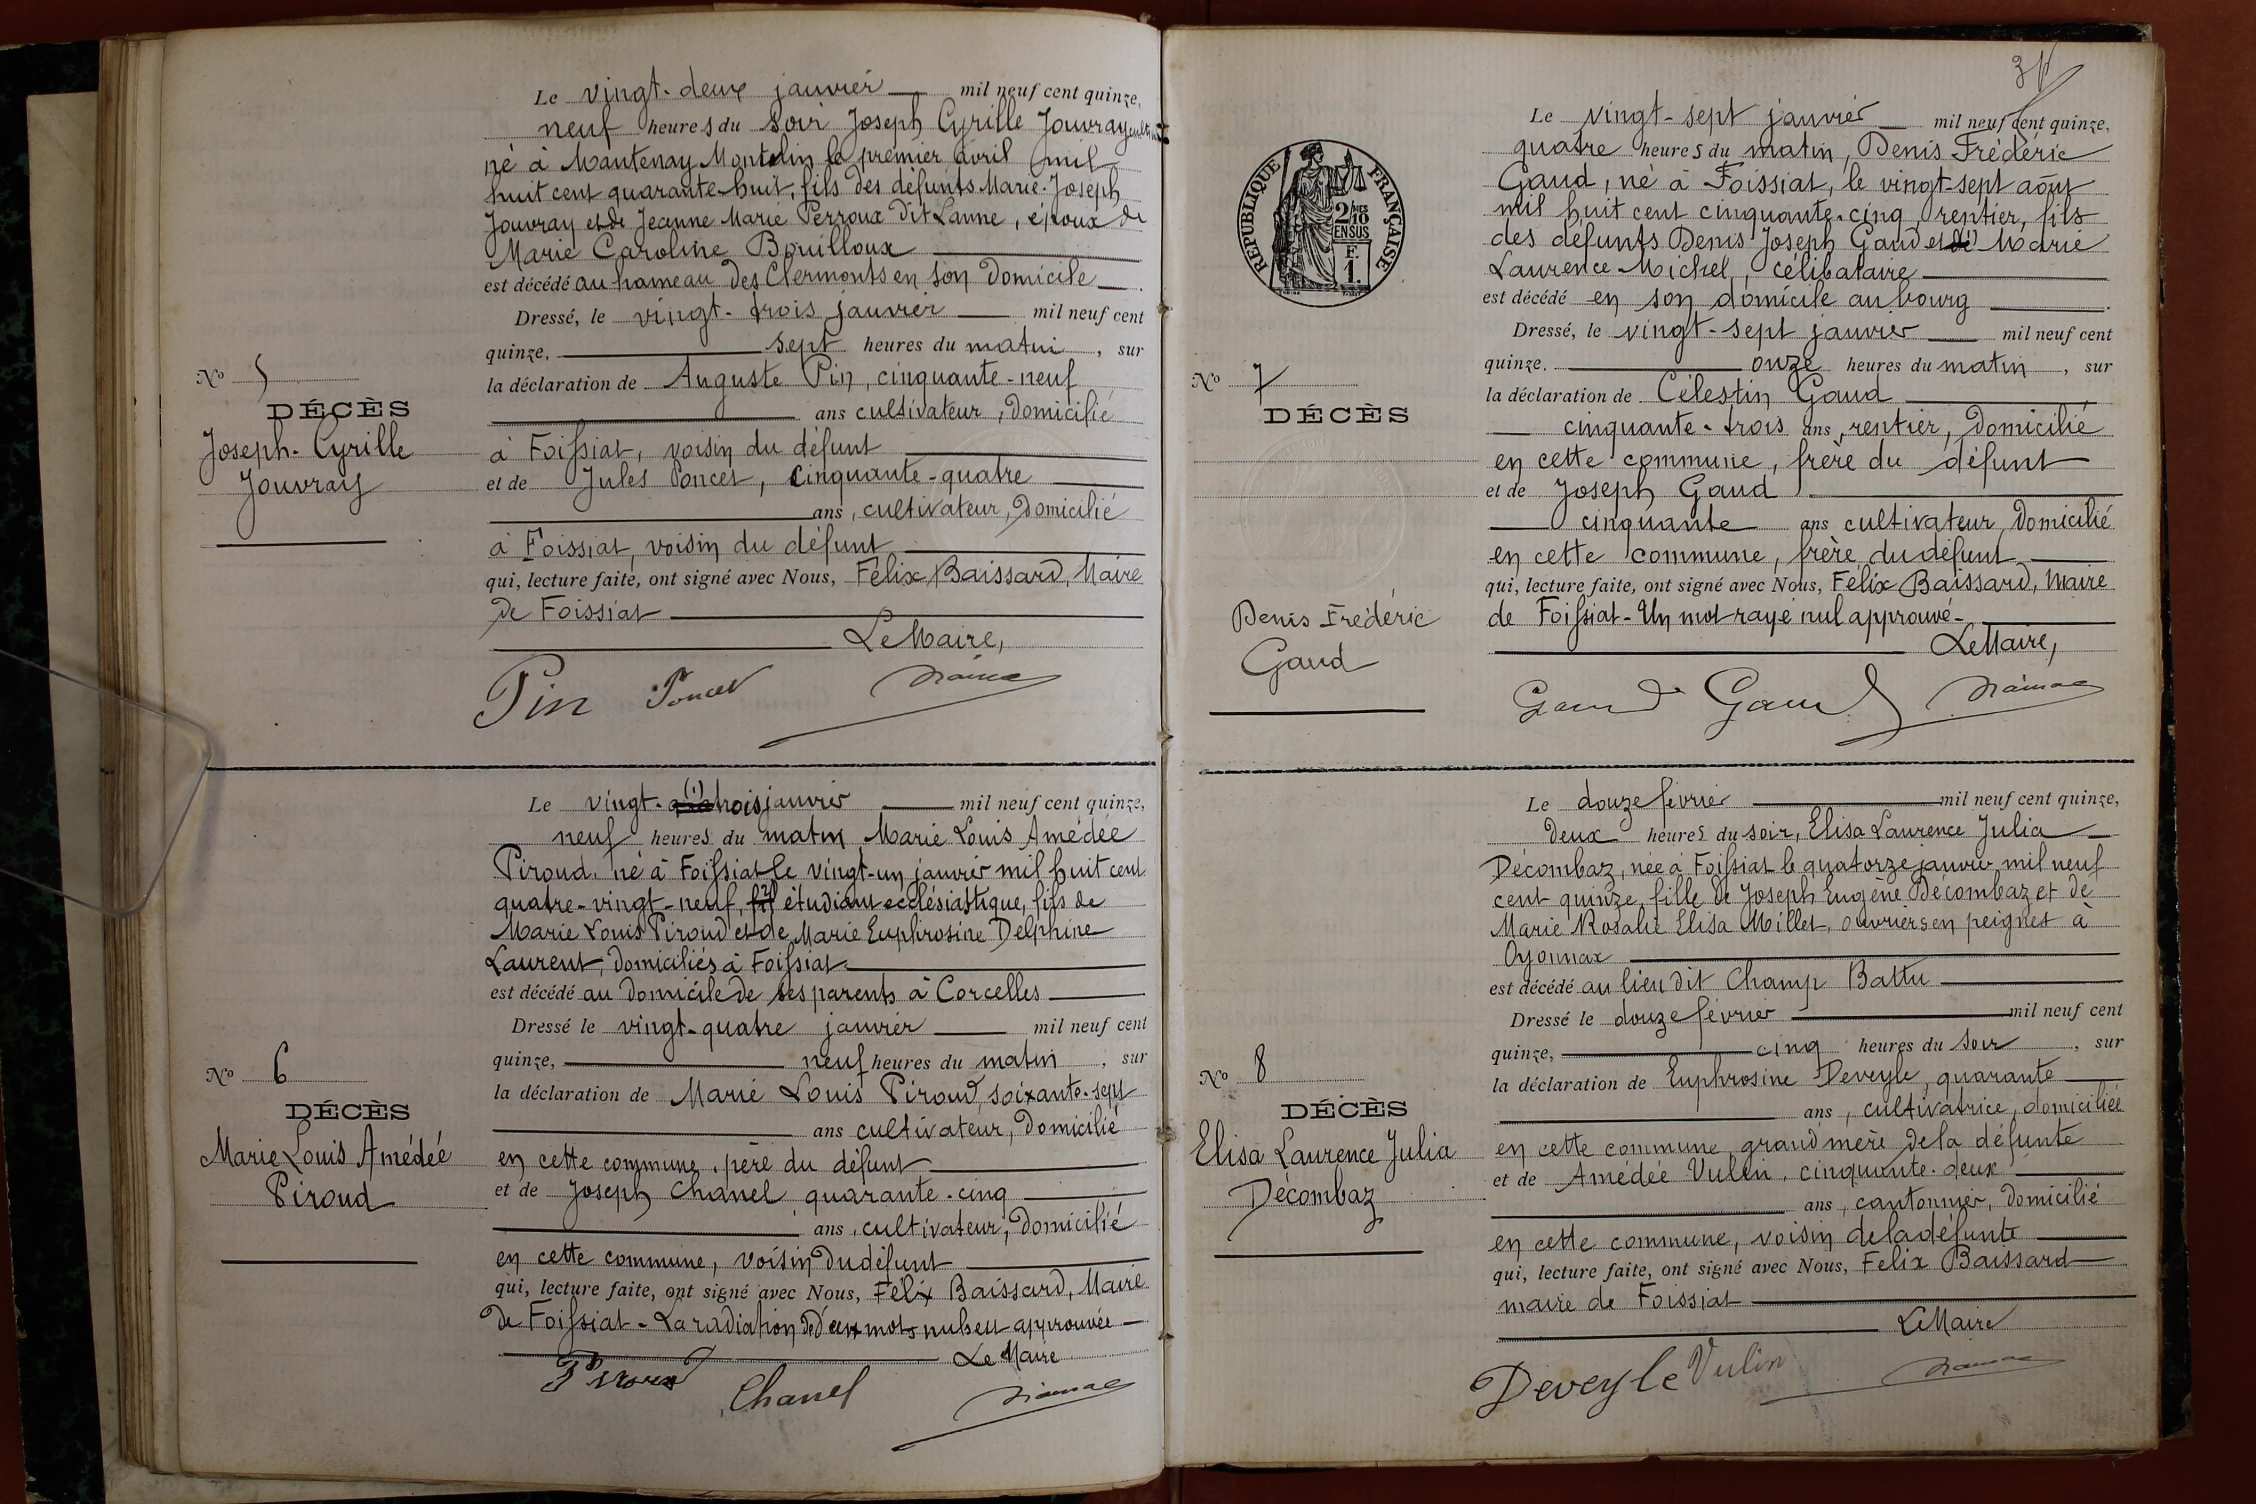 Le vingt-deux janvier mil neuf cent quinze,
neuf heures du soir Joseph Cyrille Jouvray
né à Mantenay Montelin le premier avril mil
huit cent quarante-huit, fils des défunts Marie-Joseph
Jouvray et de Jeanne Marie Perroux dit Lanne, époux de
Marie Caroline Bouilloux
est décédé au hameau des Clermonts en son domicile
Dressé, le vingt-trois janvier mil neuf cent
quinze, sept heures du matin, sur
la déclaration de Auguste Pin, cinquante-neuf
ans cultivateur, domicilié
à Foissiat, voisin du défunt
et de Jules Poncet, cinquante-quatre
ans, cultivateur, domicilié
à Foissiat, voisin du défunt
qui, lecture faite, ont signé avec Nous, Félix Baissard, Maire
de Foissiat
Le Maire,
Pin Poncet
No 5
DÉCÈS
Joseph-Cyrille
Jouvray
Le vingt-(1) trois janvier mil neuf cent quinze,
neuf heures du matin Marie Louis Amédée
Piroud, né à Foissiat le vingt-un janvier mil huit cent
quatre-vingt-neuf, étudiant ecclésiastique, fils de
Marie Louis Piroud et de Marie Euphrosine Delphine
Laurent, domiciliés à Foissiat
est décédé au domicile de ses parents à Corcelles
Dressé le vingt-quatre janvier mil neuf cent
quinze, neuf heures du matin, sur
la déclaration de Marie Louis Piroud, soixante-sept
ans cultivateur, domicilié
en cette commune, père du défunt
et de Joseph Chanel quarante-cinq
ans, cultivateur, domicilié
en cette commune, voisin du défunt
qui, lecture faite, ont signé avec Nous, Félix Baissard, Maire
de Foissiat - La radiation de deux mots nuls est approuvée
Le Maire
Piroud Chanel
No 6
DÉCÈS
Marie Louis Amédée
Piroud
Le vingt-sept janvier mil neuf cent quinze,
quatre heures du matin, Denis Frédéric
Gaud, né à Foissiat, le vingt-sept août
mil huit cent cinquante-cinq, rentier, fils
des défunts Denis Joseph Gaud et de Marie
Laurence Michel, célibataire
est décédé en son domicile au bourg
Dressé, le vingt-sept janvier mil neuf cent
quinze. onze heures du matin, sur
la déclaration de Célestin Gaud
cinquante-trois ans, rentier, domicilié
en cette commune, frère du défunt
et de Joseph Gaud
cinquante ans cultivateur, domicilié
en cette commune, frère du défunt
qui, lecture faite, ont signé avec Nous, Félix Baissard, Maire
de Foissiat - Un mot rayé nul approuvé -
Le Maire,
Gaud Gaud
RÉPUBLIQUE FRANÇAISE
2/10 EN SUS
F. 1.
No 7
DÉCÈS
Denis Frédéric
Gaud
Le douze février mil neuf cent quinze,
deux heures du soir, Elisa Laurence Julia
Décombaz, née à Foissiat le quatorze janvier mil neuf
cent quinze, fille de Joseph Eugène Décombaz et de
Marie Rosalie Elisa Millet, ouvriers en peignes à
Oyonnax
est décédé au lieu dit Champ Battu
Dressé le douze février mil neuf cent
quinze, cinq heures du soir, sur
la déclaration de Euphrosine Deveyle, quarante
ans, cultivatrice, domiciliée
en cette commune grand'mère de la défunte
et de Amédée Vulin, cinquante-deux
ans, cantonnier, domicilié
en cette commune, voisin de la défunte
qui, lecture faite, ont signé avec Nous, Félix Baissard
maire de Foissiat
Le Maire
Deveyle Vulin
No 8
DÉCÈS
Elisa Laurence Julia
Décombaz